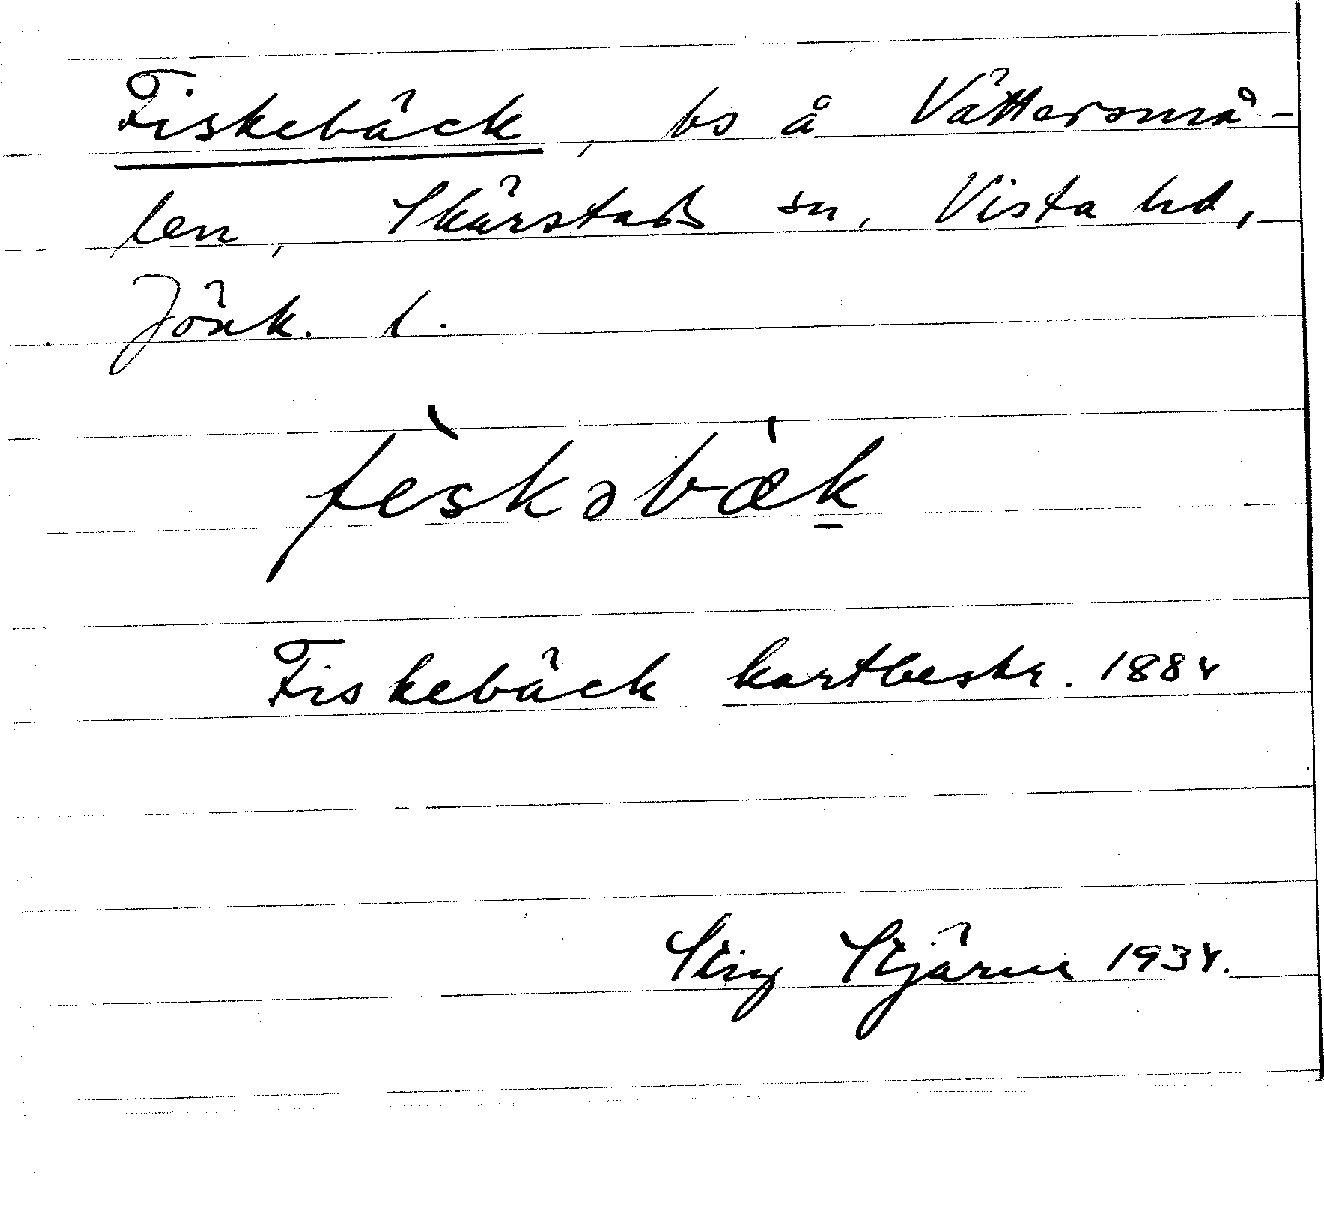 Fiskebäck, bs å Vättersmå-
len, Skärstads sn, Vista hd,
Jönk. l.
fèskəbæ̀k
Fiskebäck kartbeskr. 1884
Stig Stjärne 1934.